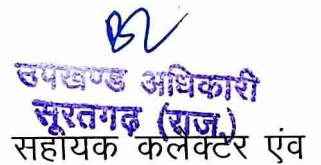 उपखण्ड अधिकारी
सूरतगढ़ (राज.)
सहायक कलेक्टर एंव